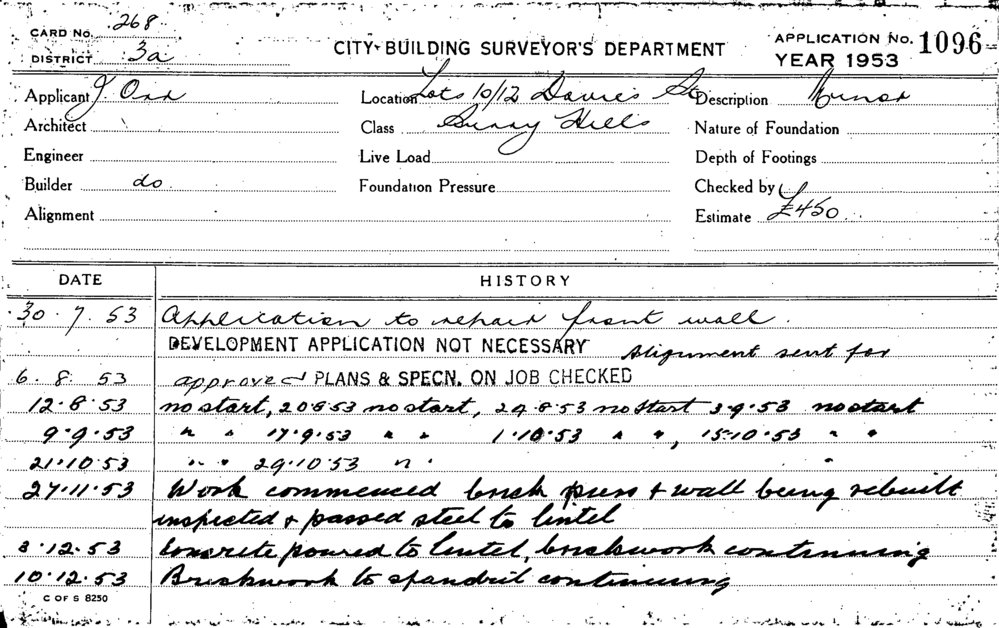 CARD No. 268
DISTRICT 3a
CITY BUILDING SURVEYOR'S DEPARTMENT
APPLICATION No. 1096
YEAR 1953
Applicant J Orr
Location Lots 10/12 Davies St
Description Minor
Architect
Class Surry Hills
Nature of Foundation
Engineer
Live Load
Depth of Footings
Builder do
Foundation Pressure
Checked by
Alignment
Estimate £450
DATE HISTORY
30.7.53 Application to repair front wall.
DEVELOPMENT APPLICATION NOT NECESSARY Alignment sent for
6.8.53 approved PLANS & SPECN. ON JOB CHECKED
12.8.53 no start, 20.8.53 no start, 24.8.53 no start 3.9.53 no start
9.9.53 " " 17.9.53 " " 1.10.53 " ", 15.10.53 " "
21.10.53 " " 29.10.53 " "
27.11.53 Work commenced brick piers + wall being rebuilt
inspected + passed steel to lintel
3.12.53 Concrete poured to lintel, brickwork continuing
10.12.53 Brickwork to spandril continuing
C OF S 8250